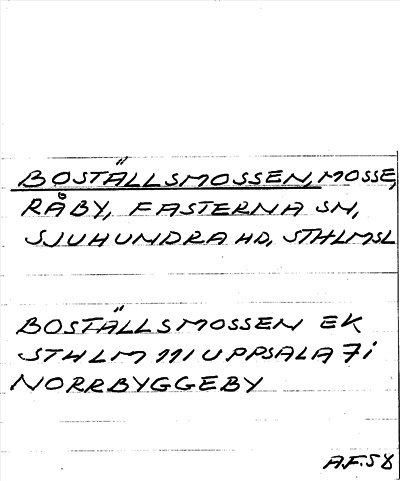 BOSTÄLLSMOSSEN, MOSSE,
RÅBY, FASTERNA SN,
SJUHUNDRA HD, STHLMSL
BOSTÄLLSMOSSEN EK
STHLM 111 UPPSALA 7 i
NORRBYGGEBY
A.F. 58